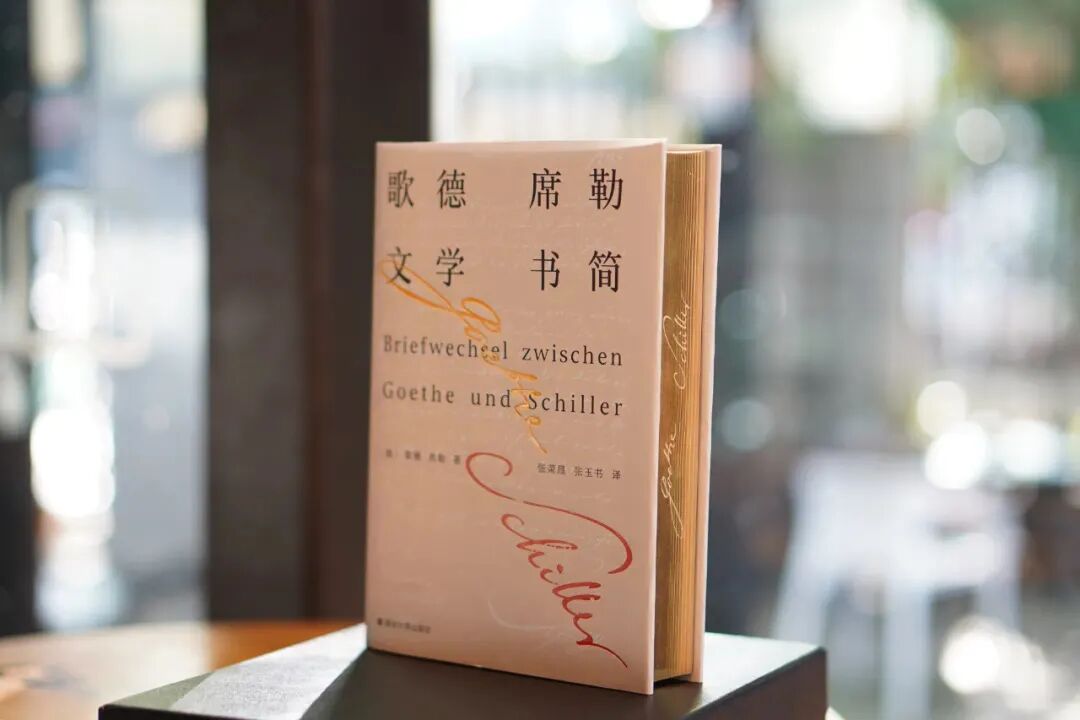 歌德 席勒
文学 书简
Goethe
Briefwechsel zwischen
Goethe und Schiller
歌德 席勒 著
张荣昌 张玉书 译
Schiller
Goethe Schiller